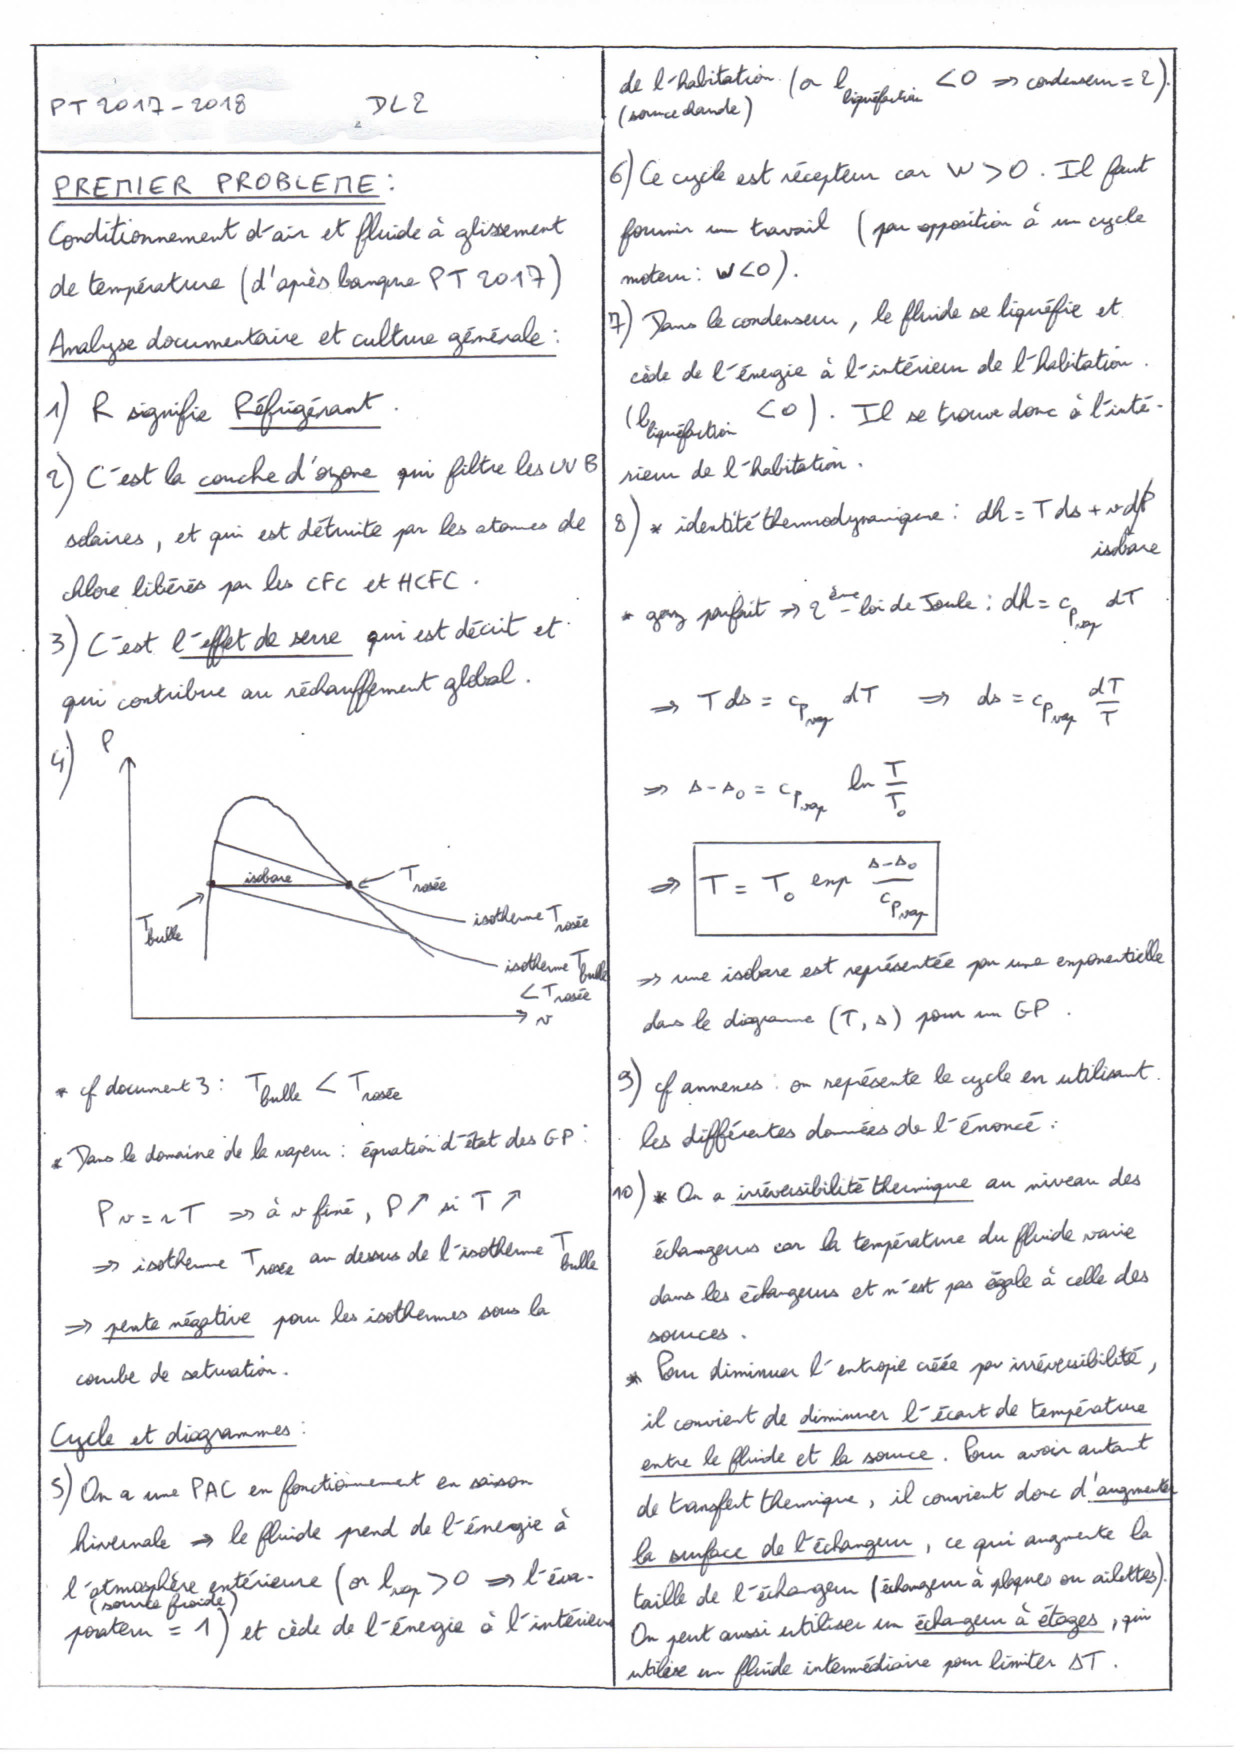 PT 2017-2018 DL2
PREMIER PROBLEME :
Conditionnement d'air et fluide à glissement
de température (d'après banque PT 2017)
Analyse documentaire et culture générale :
1) R signifie Réfrigérant.
2) C'est la couche d'ozone qui filtre les UV B
solaires, et qui est détruite par les atomes de
chlore libérés par les CFC et HCFC.
3) C'est l'effet de serre qui est décrit et
qui contribue au réchauffement global.
4)
P
isobare
T rosée
T bulle
isotherme T rosée
isotherme T bulle
< T rosée
v
* cf document 3 : T bulle < T rosée
* Dans le domaine de la vapeur : équation d'état des GP :
Pv = rT ⇒ à v fixé, P↗ si T↗
⇒ isotherme T rosée au dessus de l'isotherme T bulle
⇒ pente négative pour les isothermes sous la
courbe de saturation.
Cycle et diagrammes :
5) On a une PAC en fonctionnement en saison
hivernale ⇒ le fluide prend de l'énergie à
l'atmosphère extérieure (or l vap > 0 ⇒ l'éva-
(source froide)
porateur = 1) et cède de l'énergie à l'intérieur
de l'habitation (or l liquéfaction < 0 ⇒ condenseur = 2).
(source chaude)
6) Ce cycle est récepteur car W > 0. Il faut
fournir un travail (par opposition à un cycle
moteur : W < 0).
7) Dans le condenseur, le fluide se liquéfie et
cède de l'énergie à l'intérieur de l'habitation.
(l liquéfaction < 0). Il se trouve donc à l'inté-
rieur de l'habitation.
8) * identité thermodynamique : dh = T ds + v dP
isobare
* gaz parfait ⇒ 2ème loi de Joule : dh = c_Pvap dT
⇒ T ds = c_Pvap dT ⇒ ds = c_Pvap dT/T
⇒ s - s₀ = c_Pvap ln T/T₀
⇒ T = T₀ exp (s - s₀)/c_Pvap
⇒ une isobare est représentée par une exponentielle
dans le diagramme (T, s) pour un GP.
9) cf annexes : on représente le cycle en utilisant
les différentes données de l'énoncé.
10) * On a irréversibilité thermique au niveau des
échangeurs car la température du fluide varie
dans les échangeurs et n'est pas égale à celle des
sources.
* Pour diminuer l'entropie créée par irréversibilité,
il convient de diminuer l'écart de température
entre le fluide et la source. Pour avoir autant
de transfert thermique, il convient donc d'augmenter
la surface de l'échangeur, ce qui augmente la
taille de l'échangeur (échangeur à plaques ou ailettes).
On peut aussi utiliser un échangeur à étages, qui
utilise un fluide intermédiaire pour limiter ΔT.